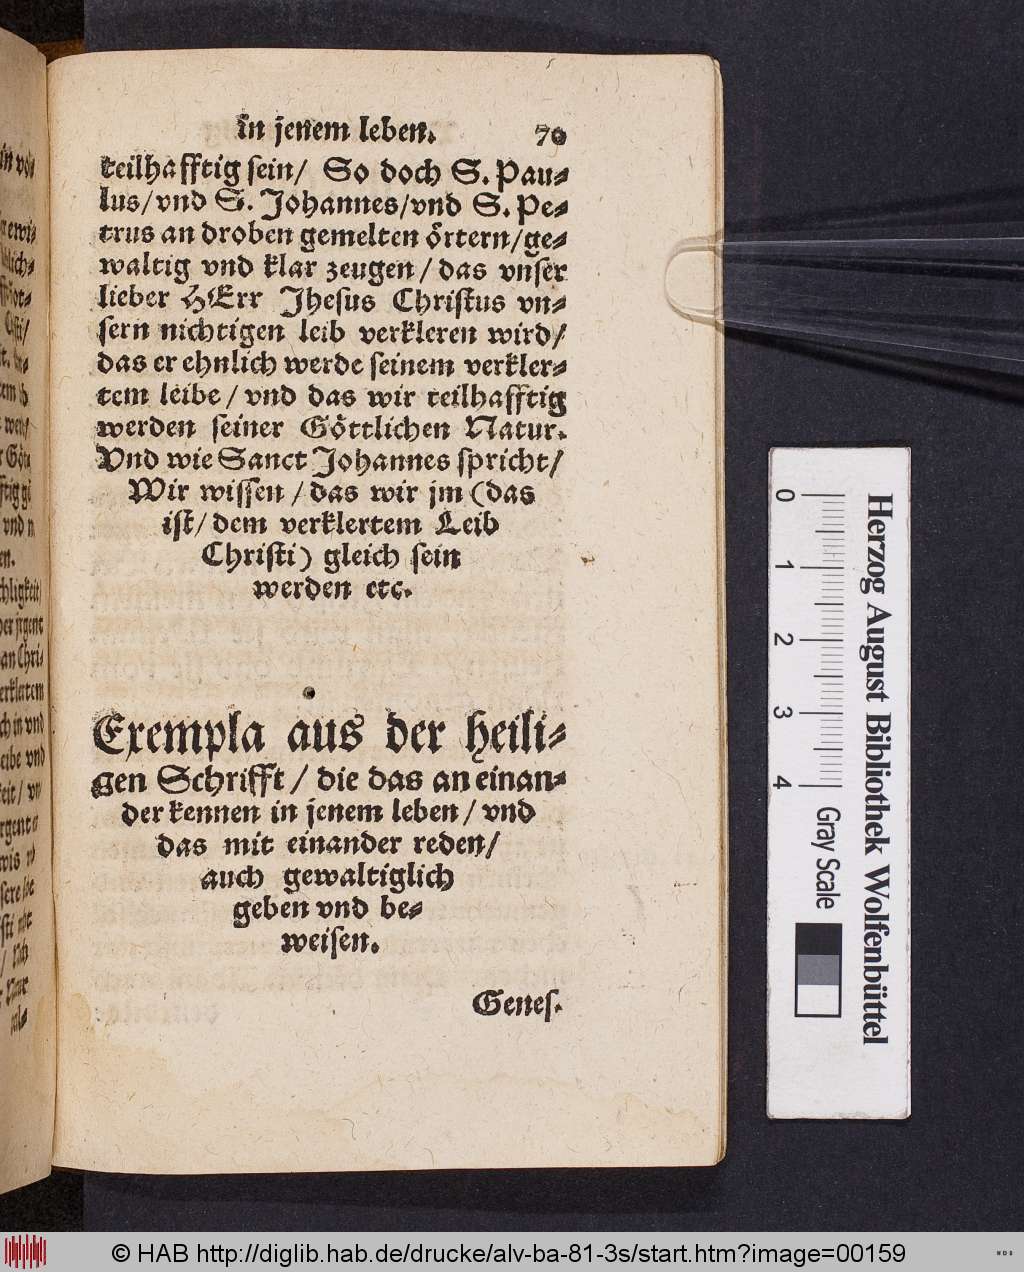 in jenem leben. 70
teilhafftig sein/ So doch S. Pau-
lus/vnd S. Johannes/vnd S. Pe-
trus an droben gemelten örtern/ge-
waltig vnd klar zeugen/das vnser
lieber HErr Jhesus Christus vn-
sern nichtigen leib verkleren wird/
das er ehnlich werde seinem verkler-
tem leibe/vnd das wir teilhafftig
werden seiner Göttlichen Natur.
Vnd wie Sanct Johannes spricht/
Wir wissen/das wir jm (das
ist/dem verklertem Leib
Christi) gleich sein
werden etc.
Exempla aus der heili-
gen Schrifft/die das an einan-
der kennen in jenem leben/vnd
das mit einander reden/
auch gewaltiglich
geben vnd be-
weisen.
Genes.
0 1 2 3 4
Gray Scale
Herzog August Bibliothek Wolfenbüttel
© HAB http://diglib.hab.de/drucke/alv-ba-81-3s/start.htm?image=00159